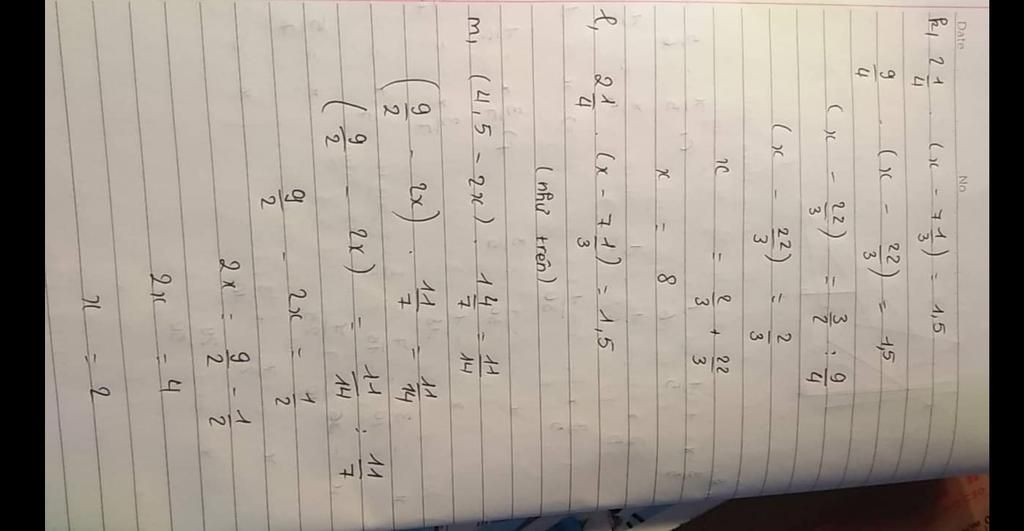 Date No
k, 2 1/4 . (x - 7 1/3) = 1,5
9/4 . (x - 22/3) = 1,5
(x - 22/3) = 3/2 : 9/4
(x - 22/3) = 2/3
x = 2/3 + 22/3
x = 8
l, 2 1/4 . (x - 7 1/3) = 1,5
(như trên)
m, (4,5 - 2x) . 1 4/7 = 11/14
(9/2 - 2x) . 11/7 = 11/14
(9/2 - 2x) = 11/14 : 11/7
9/2 - 2x = 1/2
2x = 9/2 - 1/2
2x = 4
x = 2